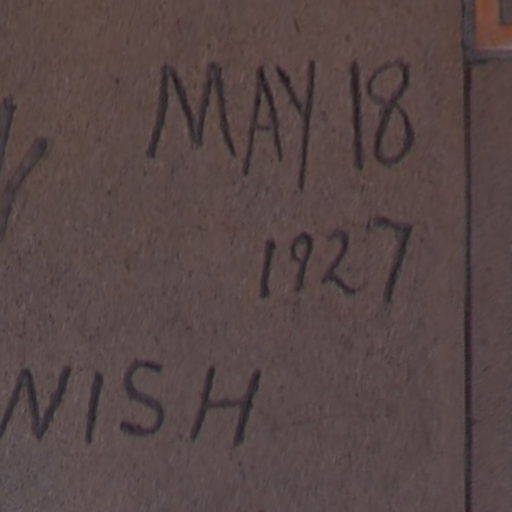 MAY 18
1927
NISH